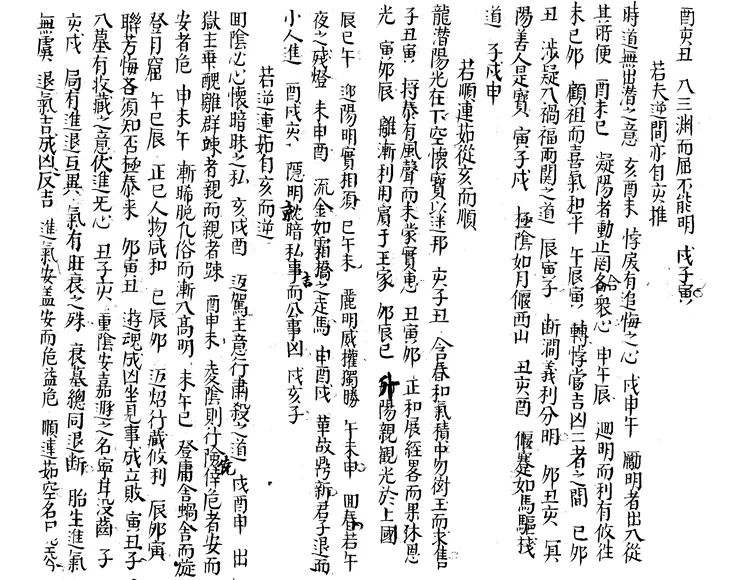 酉亥丑 入三淵而屈不能明 戌子寅
若夫逆間亦自亥推
時道無出潛之意 亥酉未 悖戾有追悔之心 戌申午 勵明者出入從
其所便 酉未巳 凝陽者動止罔給衆心 申午辰 迴明而利有攸往
未巳卯 顧祖而喜氣和平 午辰寅 轉悖當吉凶二者之間 巳卯
丑 涉疑入禍福兩関之道 辰寅子 断澗義利分明 卯丑亥 冥
陽善人是寶 寅子戌 極陰如月偃西山 丑亥酉 偃蹇如馬驅棧
道 子戌申
若順連茹從亥而順
龍潛陽光在下空懷寶以迷邦 亥子丑 含春和氣積中勿衒玉而求售
子丑寅 将泰有風聲而未蒙實惠 丑寅卯 正和展經畧而果沐恩
光 寅卯辰 離漸利用賓于王家 卯辰巳 升陽親觀光於上國
辰巳午 迎陽明實相須 巳午未 麗明威權獨勝 午未申 回春若午
夜之残燈 未申酉 流金如霜橋之走馬 申酉戌 革故鼎新君子退而
小人進 酉戌亥 隱明就暗私事吉而公事凶 戌亥子
若逆連茹自亥而逆
回陰心懷暗昧之私 亥戌酉 返駕主意行肅殺之道 戌酉申 出
獄主垂醜離群竦者親而親者踈 酉申未 凌陰則行險徉危者安而
安者危 申未午 漸晞脱凡俗而漸入高明 未午巳 登庸舎蝸舎而旋
登月窟 午巳辰 正巳人物咸和 巳辰卯 返照行藏攸利 辰卯寅
聨芳悔吝須知否極泰来 卯寅丑 遊魂成凶坐見事成立敗 寅丑子
入墓有收藏之意伏進无心 丑子亥 重陰安嘉遯之名寧耳没齒 子
亥戌 局有進退互異 氣有旺衰之殊 衰墓總同退断 胎生進氣
無虞 退氣吉成凶反吉 進氣安益安而危益危 順連茹空名